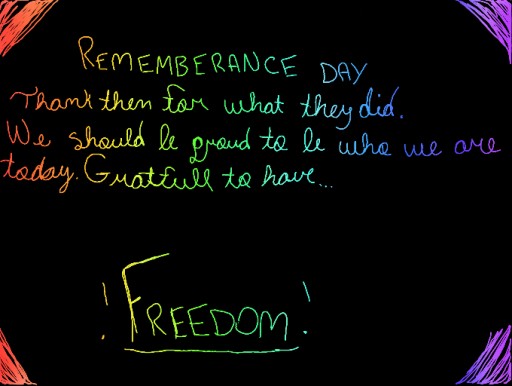 REMEMBERANCE DAY
Thank then for what they did.
We should be proud to be who we are
today. Gratfull to have...
! FREEDOM!